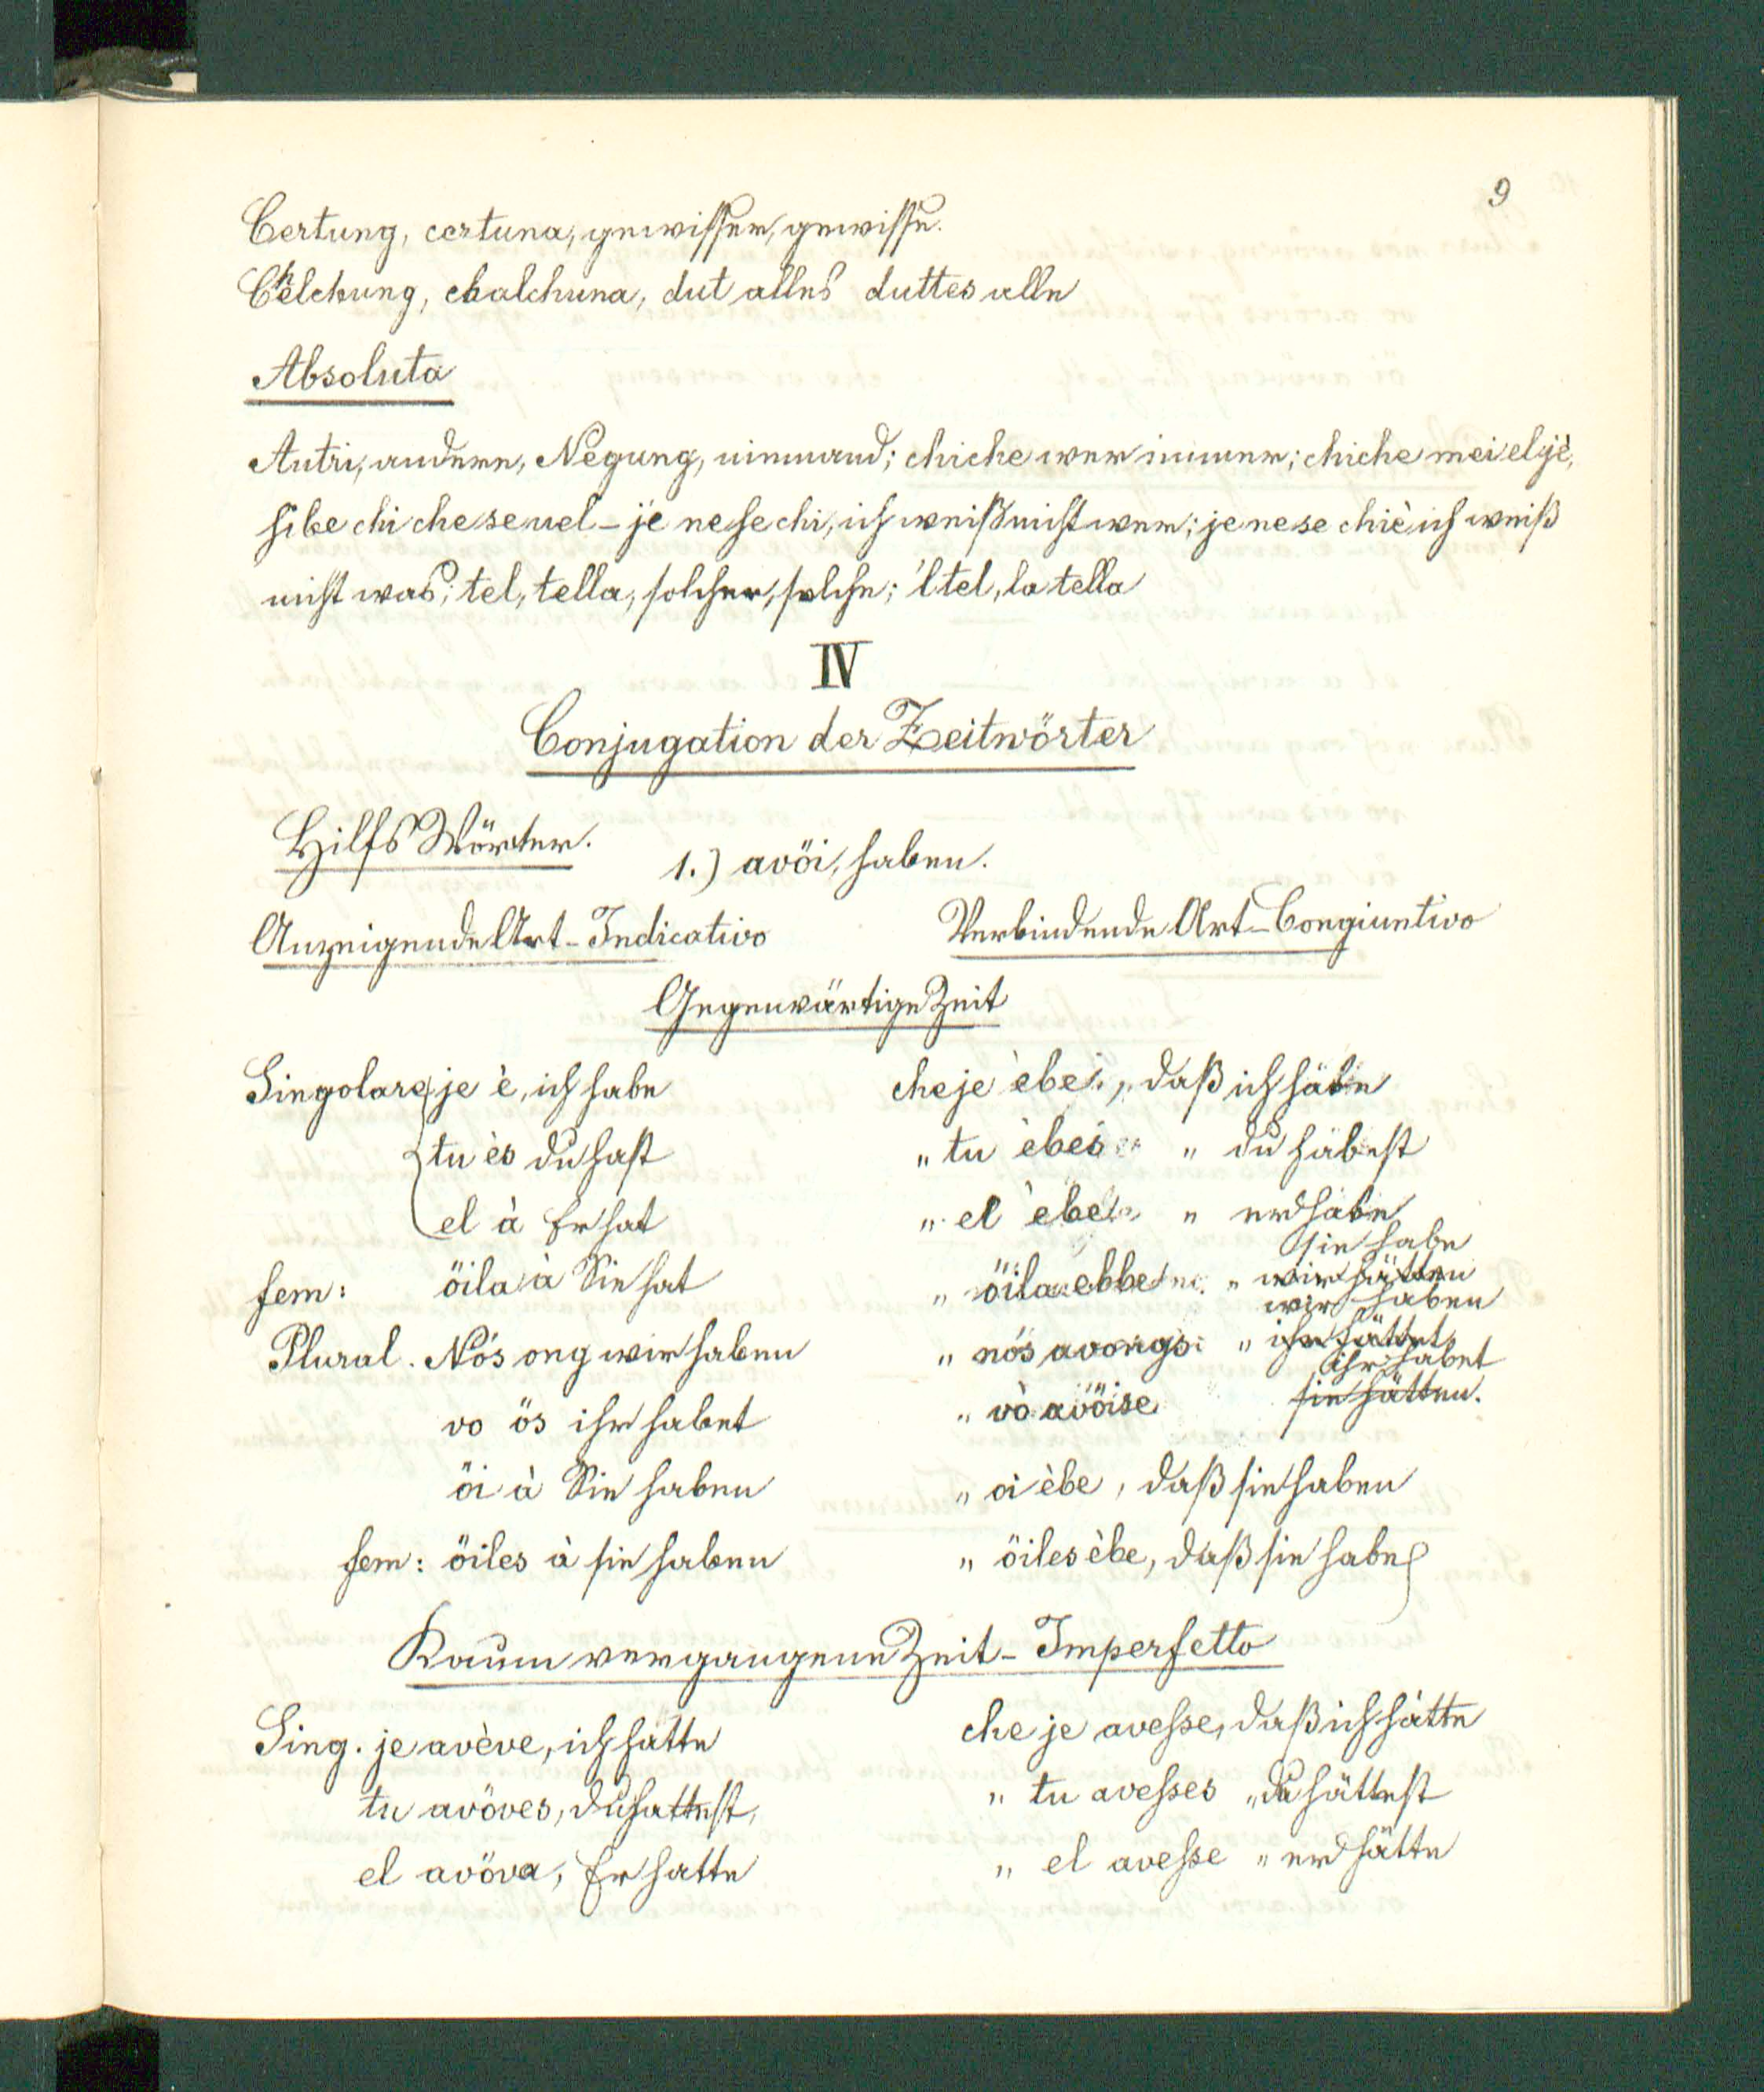 9
Certung, certuna, gewisser, gewisse.
Chelchung, chalchuna, dut alles duttes alle
Absoluta
Autri, andere, Negung, niemand; chiche wer immer; chiche mei el jè,
sibe chi che se uel - je ne se chi, ich weiß nicht wer; je ne se chiè ich weiß
nicht was; tel, tella, solcher, solche; 'l tel, la tella
IV
Conjugation der Zeitwörter
Hilfs Wörter.
1.) avöi, haben.
Anzeigende Art - Indicativo Verbindende Art - Congiuntivo
Gegenwärtige Zeit
Singolare je è, ich habe che je èbe, daß ich habe
tu ès du hast „ tu èbes „ du habest
el à Er hat „ el èbe „ er habe
sie habe
fem: öila à Sie hat „ öila ebbe „ wir hätten
wir haben
Plural. Nós ong wir haben „ nós avongs „ ihr hättet
ihr habet
vo ös ihr habet „ vò avöise sie hätten.
öi à Sie haben „ öi èbe, daß sie haben
fem: öiles à sie haben „ öiles èbe, daß sie habe
Kaum vergangene Zeit - Imperfetto
Sing. je avève, ich hatte che je avesse, daß ich hätte
tu avöves, du hattest, „ tu avesses „ du hättest
el avöva, Er hatte „ el avesse „ er hätte